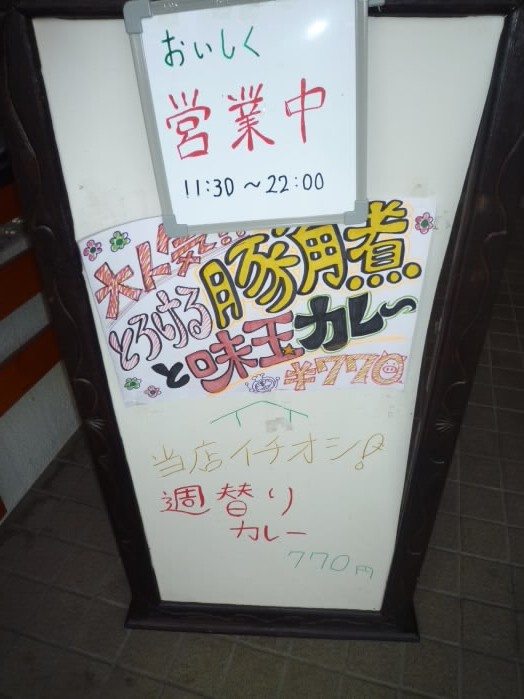 おいしく
営業中
11:30～22:00
大人気!!
とろける豚角煮
と味玉カレー
¥770
当店イチオシ!
週替り
カレー
770円